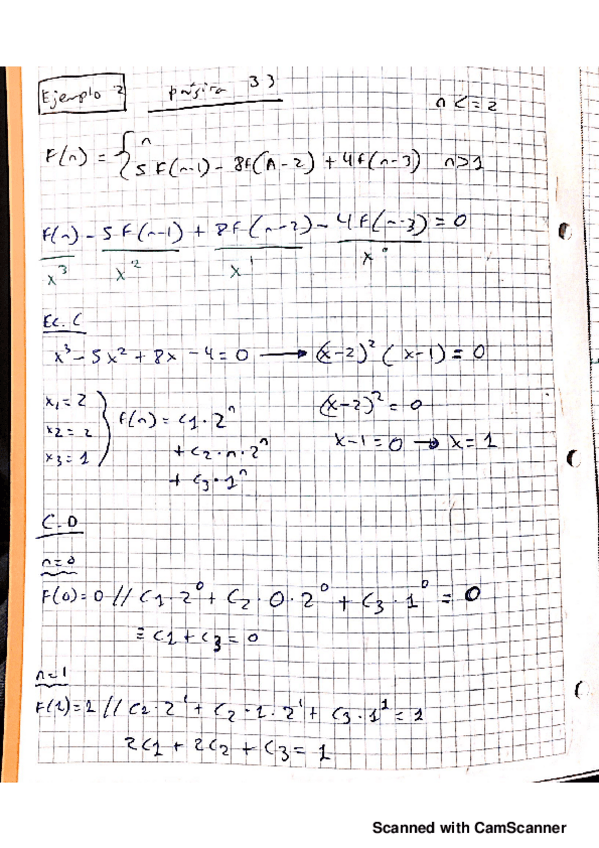 Ejemplo 2 página 33
n <= 2
F(n) = { n
5F(n-1) - 8F(n-2) + 4F(n-3) n>1
F(n) - 5F(n-1) + 8F(n-2) - 4F(n-3) = 0
x³ x² x¹ x⁰
Ec. C
x³ - 5x² + 8x - 4 = 0 → (x-2)² (x-1) = 0
x₁ = 2 (x-2)² = 0
x₂ = 2 } F(n) = C1 · 2ⁿ
+ C2 · n · 2ⁿ x-1 = 0 → x = 1
x₃ = 1 + C3 · 1ⁿ
C.O
n=0
F(0) = 0 // C1 · 2⁰ + C2 · 0 · 2⁰ + C3 · 1⁰ = 0
≡ C1 + C3 = 0
n=1
F(1) = 1 // C2 · 2¹ + C2 · 1 · 2¹ + C3 · 1¹ = 1
2C1 + 2C2 + C3 = 1
Scanned with CamScanner